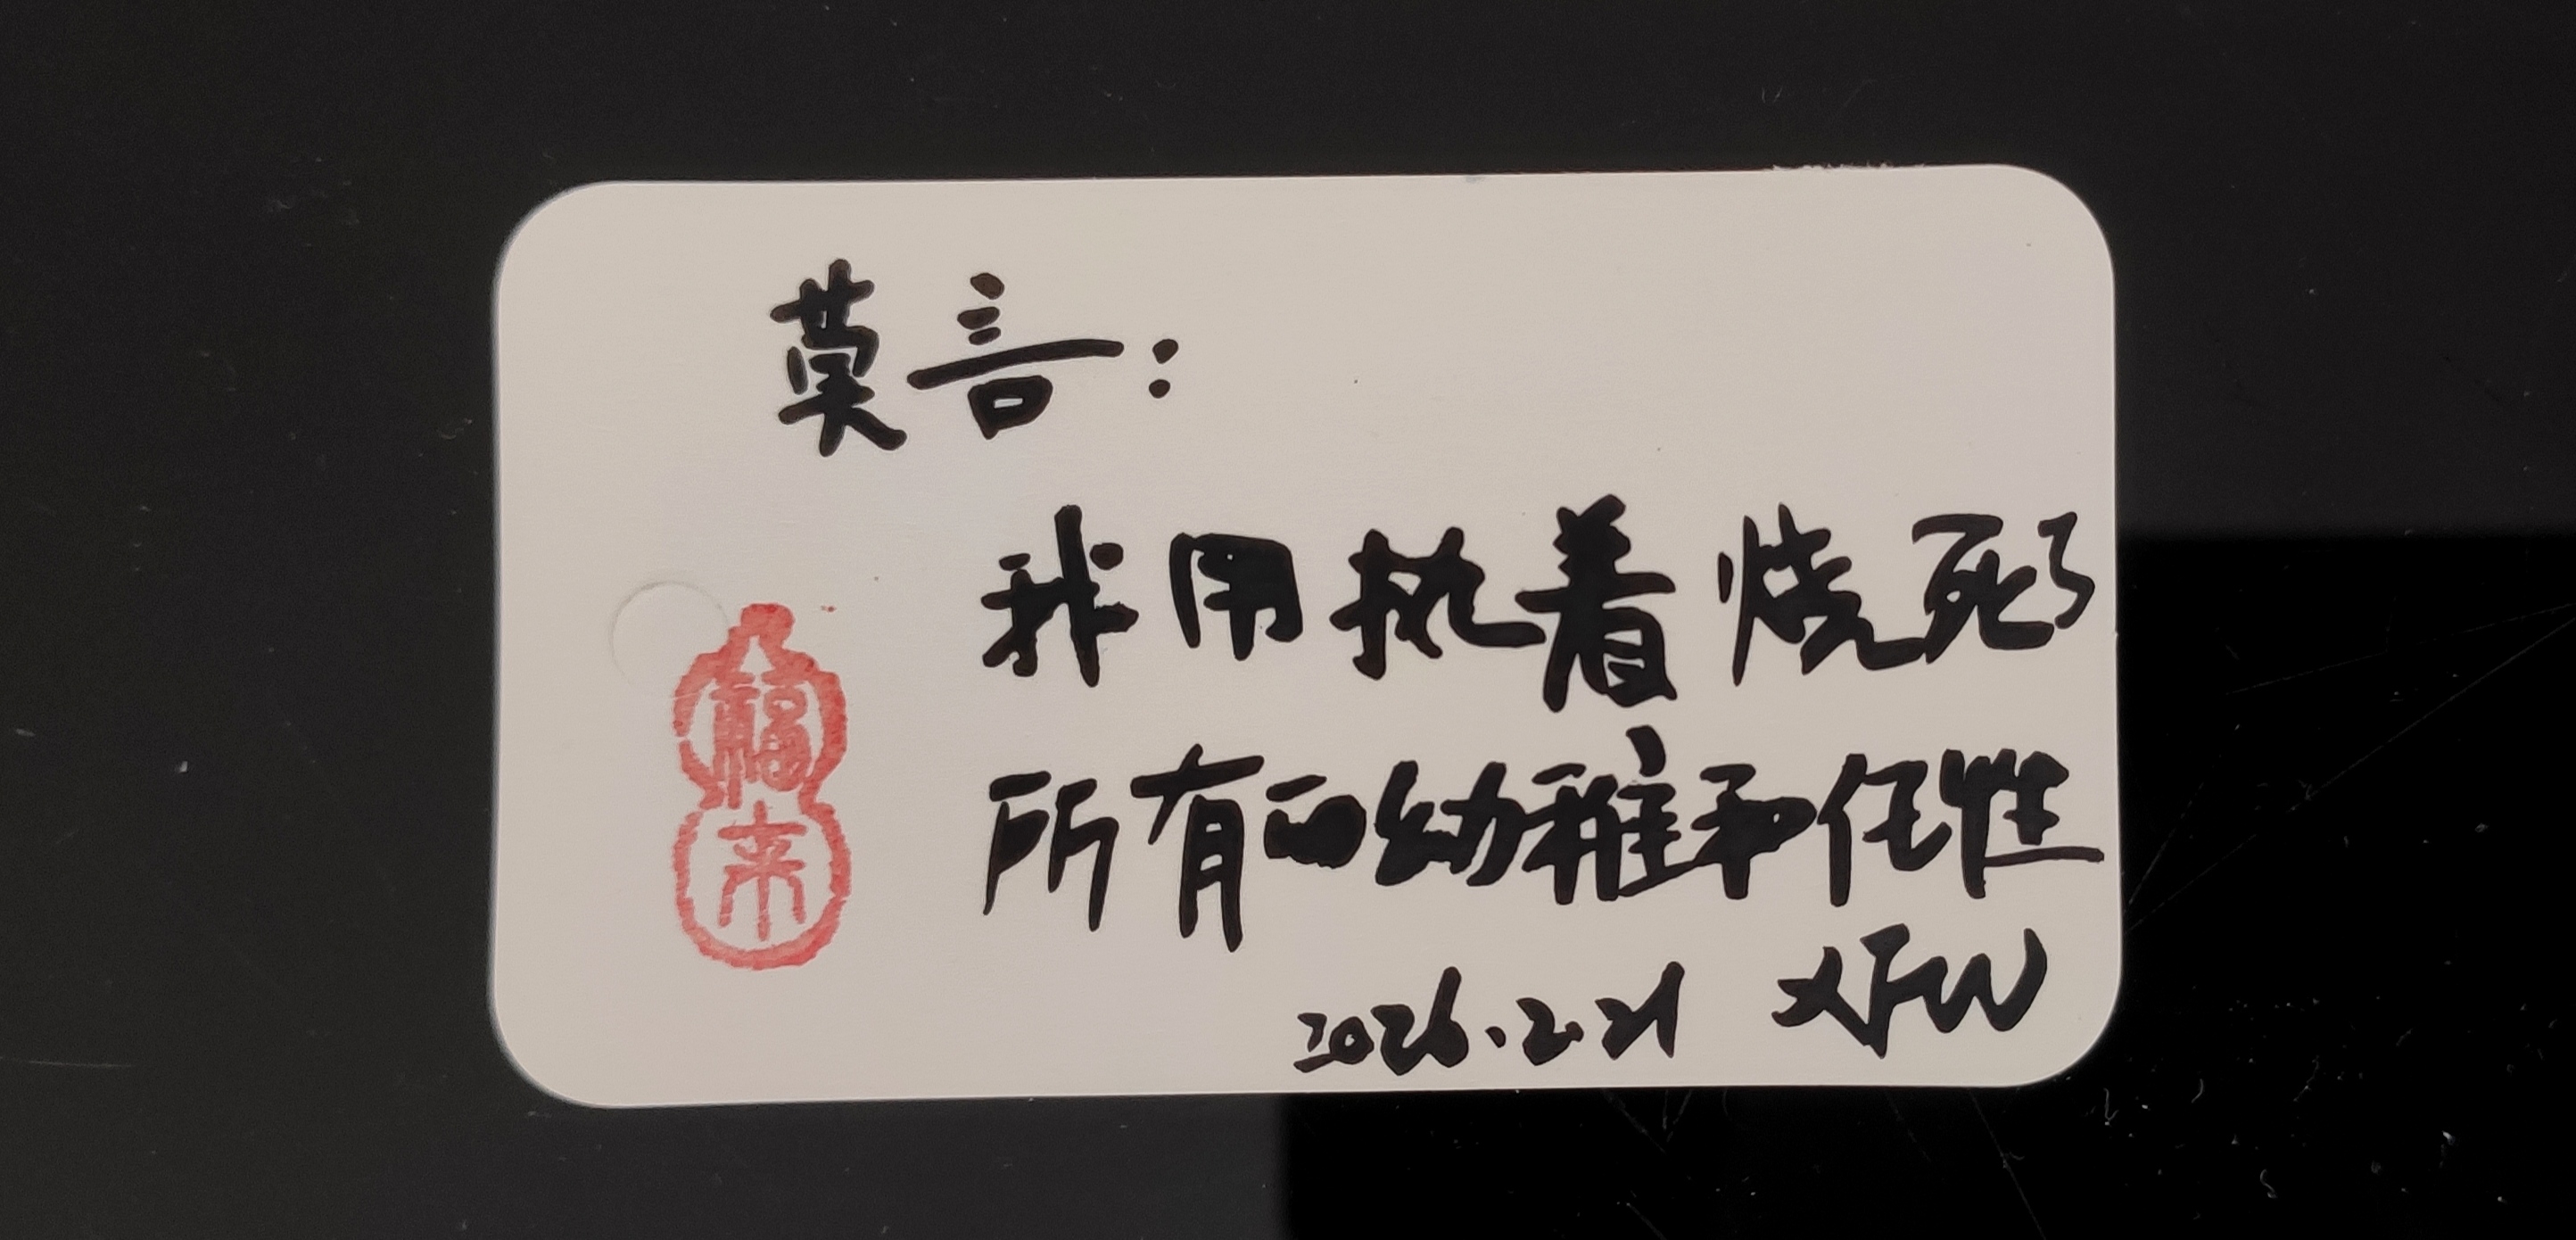 莫言：
我用执着烧死了
所有的幼稚和任性
2026.2.21 XFW
福来